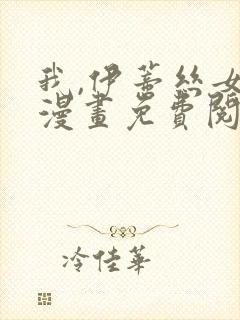 我,伊蒂絲女
漫畫免費閱
冷佳華